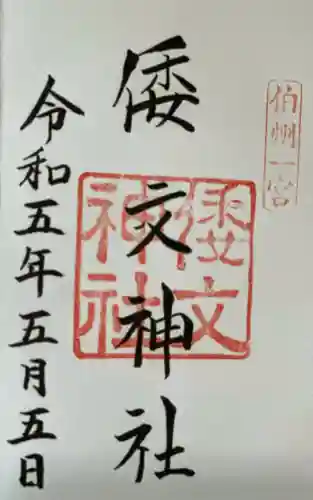 伯州一宮
倭文神社
倭文神社
令和五年五月五日